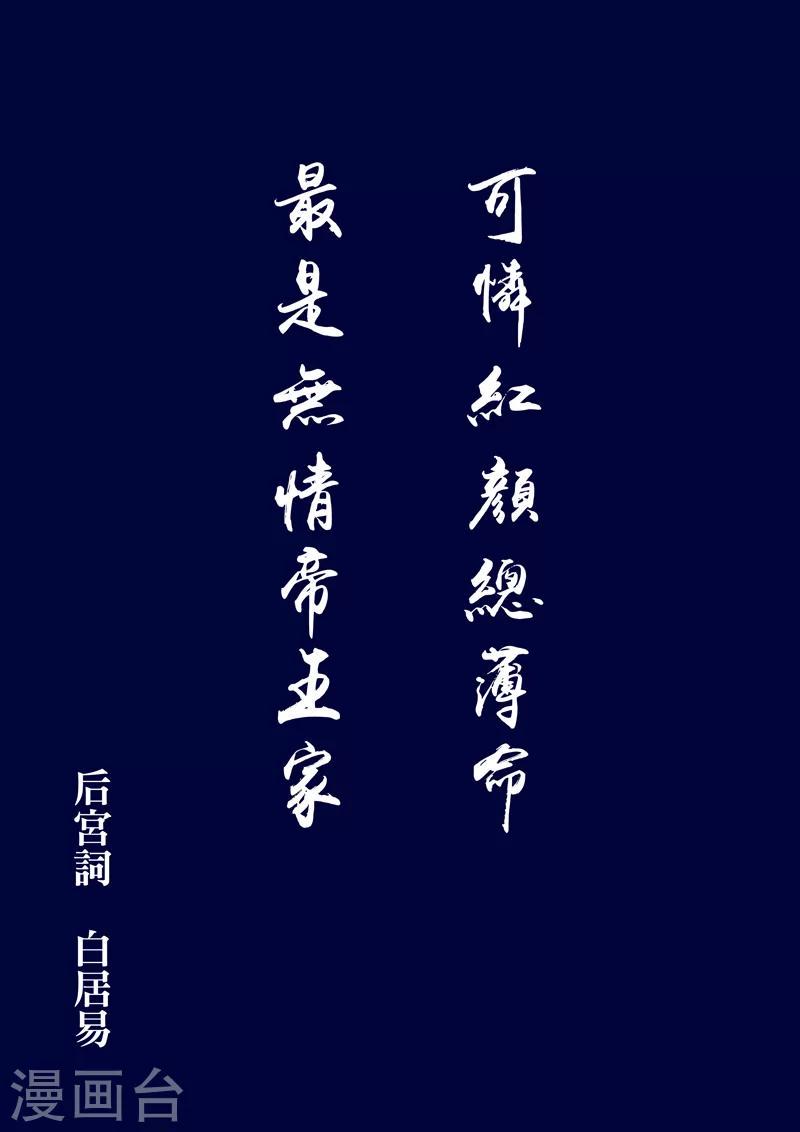 可憐紅顏總薄命
最是無情帝王家
后宮詞 白居易
漫画台